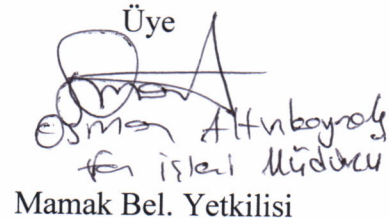 Üye
Osman Altınbayrak
Fen işleri Müdürü
Mamak Bel. Yetkilisi